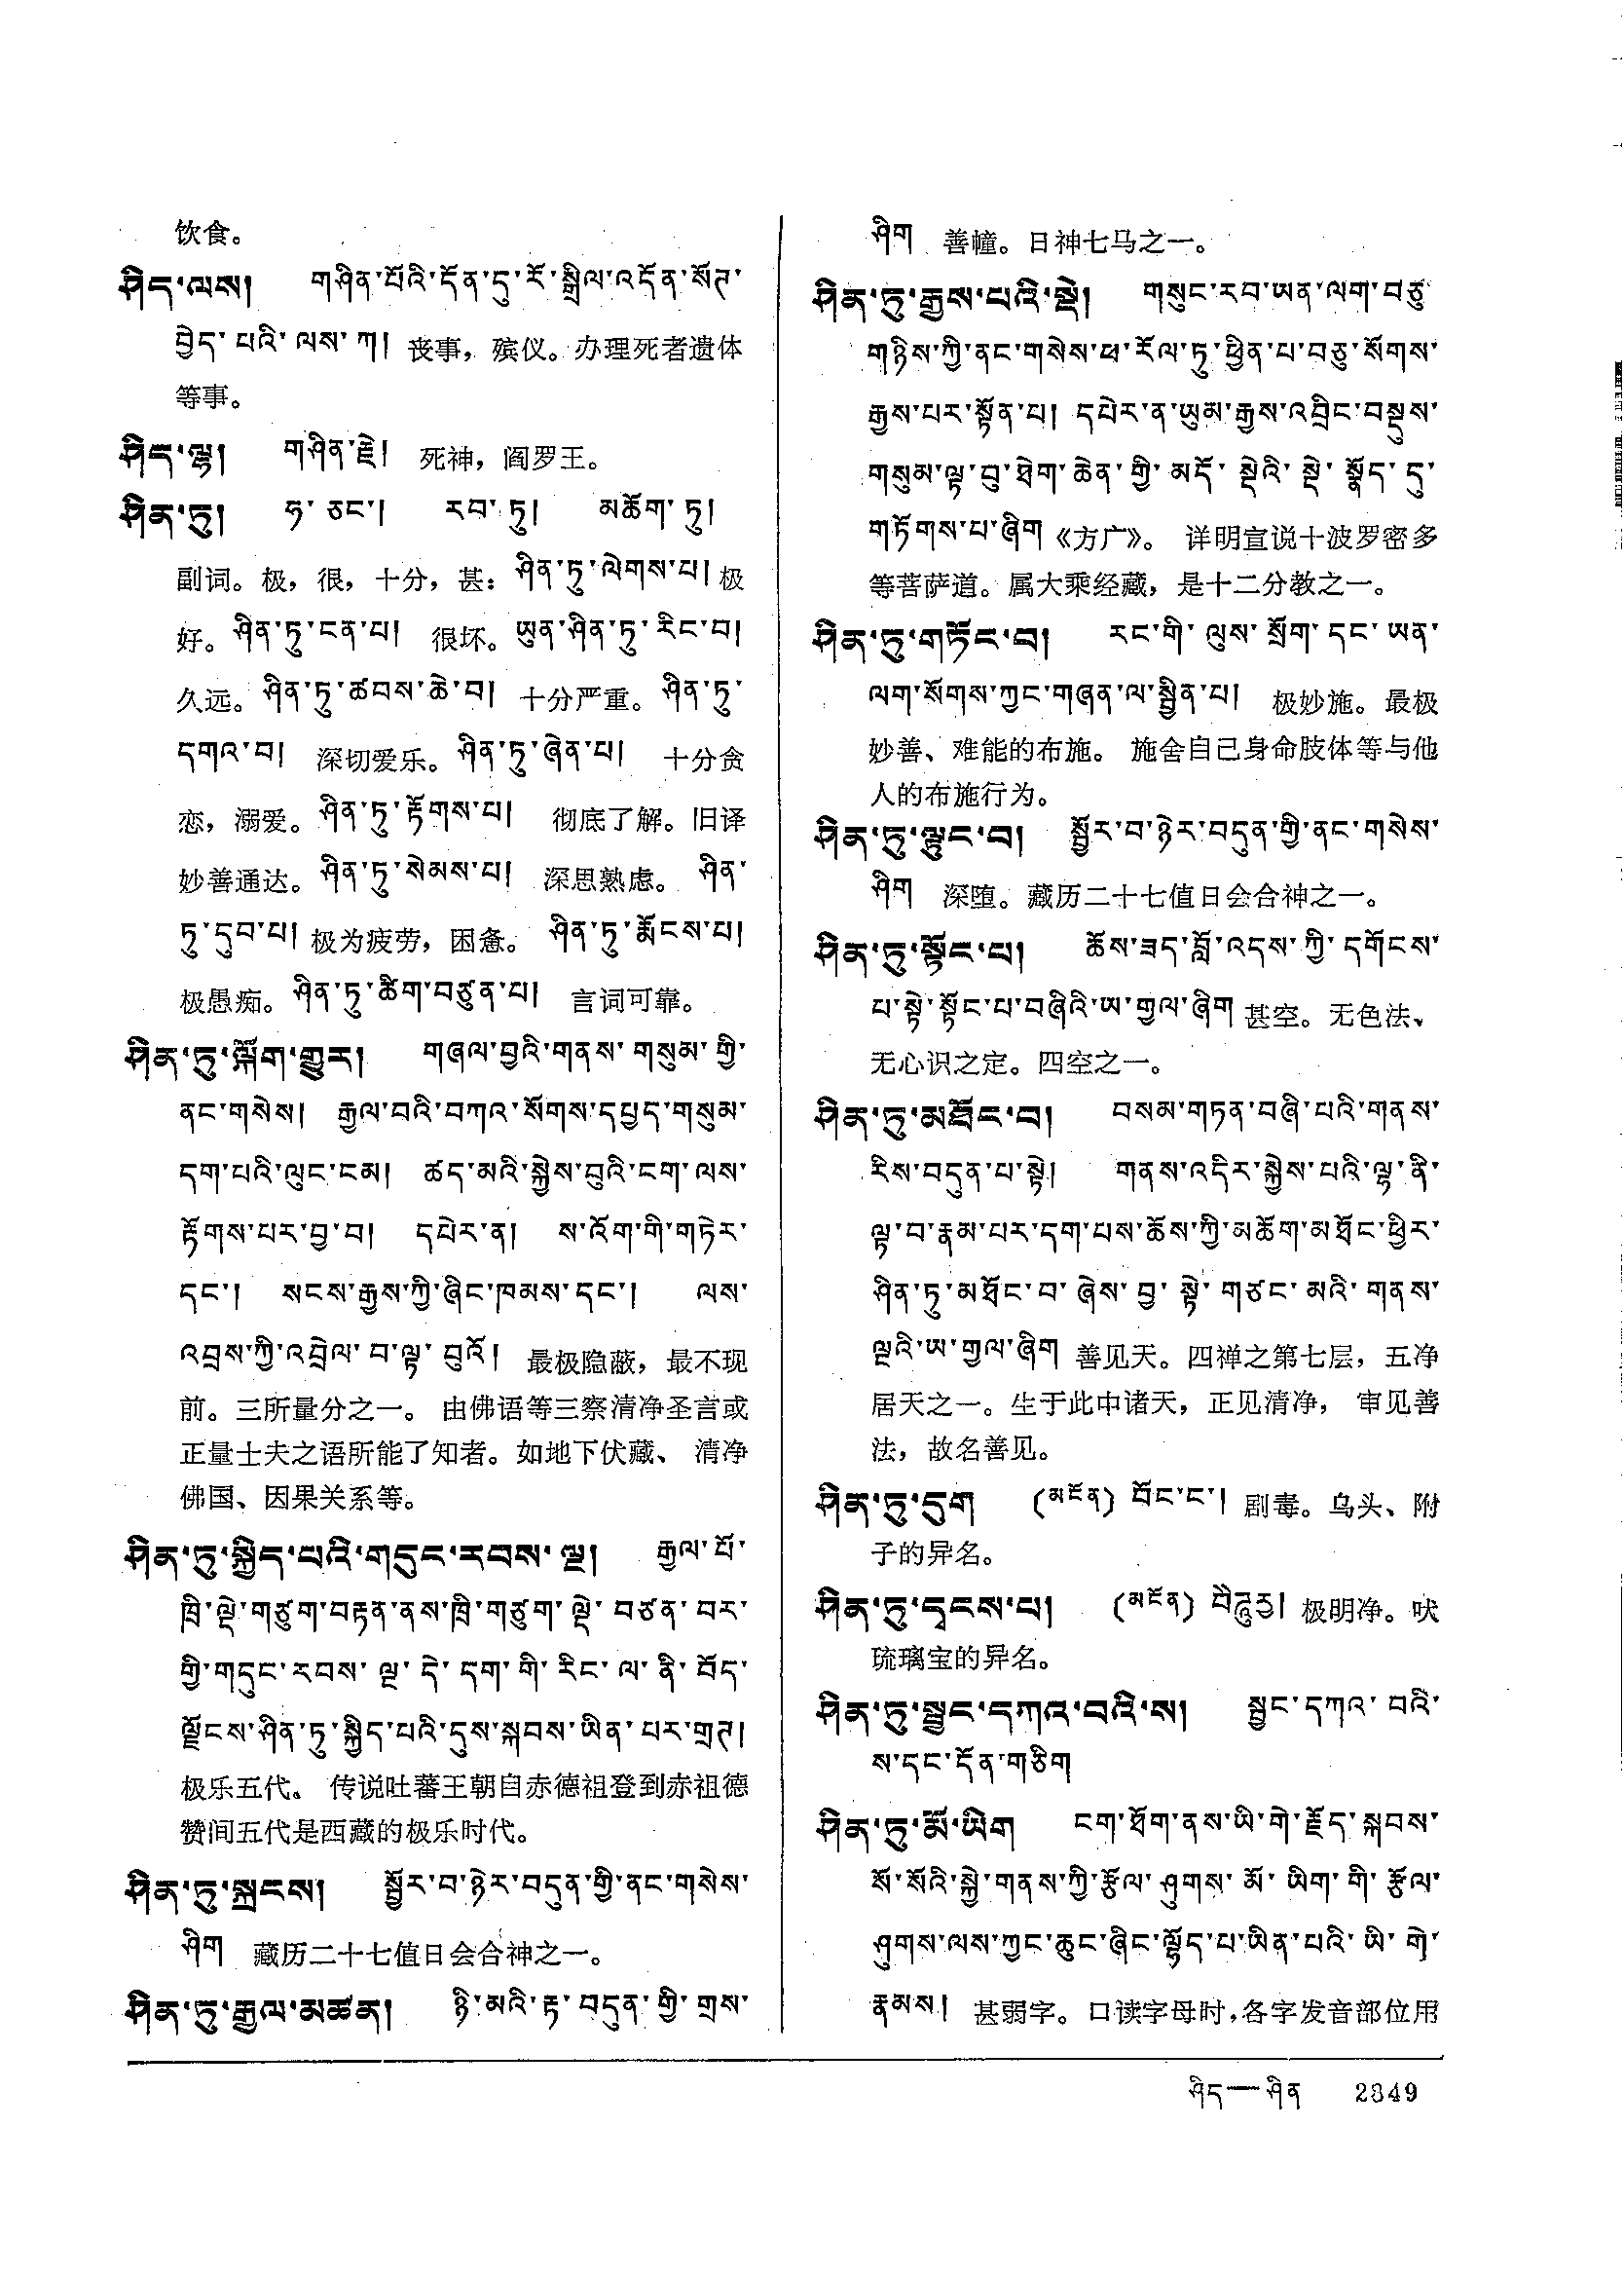 饮食。
ཤིད་ལས། གཤིན་པོའི་དོན་དུ་རོ་སྒྲིལ་འདོན་སོཊ་
བྱེད་པའི་ལས་ཀ། 丧事，殡仪。办理死者遗体
等事。
ཤིད་ལྷ། གཤིན་རྗེ། 死神，阎罗王。
ཤིན་ཏུ། ཧ་ཅང་། རབ་ཏུ། མཆོག་ཏུ།
副词。极，很，十分，甚：ཤིན་ཏུ་ལེགས་པ། 极
好。ཤིན་ཏུ་ངན་པ། 很坏。ཡུན་ཤིན་ཏུ་རིང་བ།
久远。ཤིན་ཏུ་ཚབས་ཆེ་བ། 十分严重。ཤིན་ཏུ་
དགའ་བ། 深切爱乐。ཤིན་ཏུ་ཞེན་པ། 十分贪
恋，溺爱。ཤིན་ཏུ་རྟོགས་པ། 彻底了解。旧译
妙善通达。ཤིན་ཏུ་སེམས་པ། 深思熟虑。ཤིན་
ཏུ་དུབ་པ། 极为疲劳，困惫。ཤིན་ཏུ་རྨོངས་པ།
极愚痴。ཤིན་ཏུ་ཚིག་བཙུན་པ། 言词可靠。
ཤིན་ཏུ་ལྐོག་གྱུར། གཞལ་བྱའི་གནས་གསུམ་གྱི་
ནང་གསེས། རྒྱལ་བའི་བཀའ་སོགས་དཔྱད་གསུམ་
དག་པའི་ལུང་ངམ། ཚད་མའི་སྐྱེས་བུའི་ངག་ལས་
རྟོགས་པར་བྱ་བ། དཔེར་ན། ས་འོག་གི་གཏེར་
དང་། སངས་རྒྱས་ཀྱི་ཞིང་ཁམས་དང་། ལས་
འབྲས་ཀྱི་འབྲེལ་བ་ལྟ་བུའོ། 最极隐蔽，最不现
前。三所量分之一。 由佛语等三察清净圣言或
正量士夫之语所能了知者。如地下伏藏、 清净
佛国、因果关系等。
ཤིན་ཏུ་སྐྱིད་པའི་གདུང་རབས་ལྔ། རྒྱལ་པོ་
ཁྲི་ལྡེ་གཙུག་བརྟན་ནས་ཁྲི་གཙུག་ལྡེ་བཙན་བར་
གྱི་གདུང་རབས་ལྔ་དེ་དག་གི་རིང་ལ་ནི་བོད་
ལྗོངས་ཤིན་ཏུ་སྐྱིད་པའི་དུས་སྐབས་ཡིན་པར་གྲཊ།
极乐五代。 传说吐蕃王朝自赤德祖登到赤祖德
赞间五代是西藏的极乐时代。
ཤིན་ཏུ་སྐྲངས། སྦྱོར་བ་ཉེར་བདུན་གྱི་ནང་གསེས་
ཤིག 藏历二十七值日会合神之一。
ཤིན་ཏུ་རྒྱལ་མཚན། ཉི་མའི་རྟ་བདུན་གྱི་གྲས་
ཤིག 善幢。日神七马之一。
ཤིན་ཏུ་རྒྱས་པའི་སྡེ། གསུང་རབ་ཡན་ལག་བཅུ་
གཉིས་ཀྱི་ནང་གསེས་ཕ་རོལ་ཏུ་ཕྱིན་པ་བཅུ་སོགས་
རྒྱས་པར་སྟོན་པ། དཔེར་ན་ཡུམ་རྒྱས་འབྲིང་བསྡུས་
གསུམ་ལྟ་བུ་ཐེག་ཆེན་གྱི་མདོ་སྡེའི་སྡེ་སྣོད་དུ་
གཏོགས་པ་ཞིག 《方广》。 详明宣说十波罗密多
等菩萨道。属大乘经藏，是十二分教之一。
ཤིན་ཏུ་གཏོང་བ། རང་གི་ལུས་སྲོག་དང་ཡན་
ལག་སོགས་ཀྱང་གཞན་ལ་སྦྱིན་པ། 极妙施。最极
妙善、难能的布施。 施舍自己身命肢体等与他
人的布施行为。
ཤིན་ཏུ་ལྟུང་བ། སྦྱོར་བ་ཉེར་བདུན་གྱི་ནང་གསེས་
ཤིག 深堕。藏历二十七值日会合神之一。
ཤིན་ཏུ་སྟོང་པ། ཆོས་ཟད་བློ་འདས་ཀྱི་དགོངས་
པ་སྟེ་སྟོང་པ་བཞིའི་ཨ་གྱལ་ཞིག 甚空。无色法、
无心识之定。四空之一。
ཤིན་ཏུ་མཐོང་བ། བསམ་གཏན་བཞི་པའི་གནས་
རིས་བདུན་པ་སྟེ། གནས་འདིར་སྐྱེས་པའི་ལྷ་ནི་
ལྟ་བ་རྣམ་པར་དག་པས་ཆོས་ཀྱི་མཆོག་མཐོང་ཕྱིར་
ཤིན་ཏུ་མཐོང་བ་ཞེས་བྱ་སྟེ་གཙང་མའི་གནས་
ལྔའི་ཨ་གྱལ་ཞིག 善见天。四禅之第七层，五净
居天之一。生于此中诸天，正见清净， 审见善
法，故名善见。
ཤིན་ཏུ་དུག (མངོན) བོང་ང་། 剧毒。乌头、附
子的异名。
ཤིན་ཏུ་དྭངས་པ། (མངོན) བཻཌཱུརྱ། 极明净。吠
琉璃宝的异名。
ཤིན་ཏུ་སྦྱང་དཀའ་བའི་ས། སྦྱང་དཀའ་བའི་
ས་དང་དོན་གཅིག
ཤིན་ཏུ་མོ་ཡིག ངག་ཐོག་ནས་ཡི་གེ་རྗོད་སྐབས་
སོ་སོའི་སྐྱེ་གནས་ཀྱི་རྩོལ་ཤུགས་མོ་ཡིག་གི་རྩོལ་
ཤུགས་ལས་ཀྱང་ཆུང་ཞིང་ལྷོད་པ་ཡིན་པའི་ཡི་གེ་
རྣམས། 甚弱字。口读字母时，各字发音部位用
ཤིད—ཤིན 2849